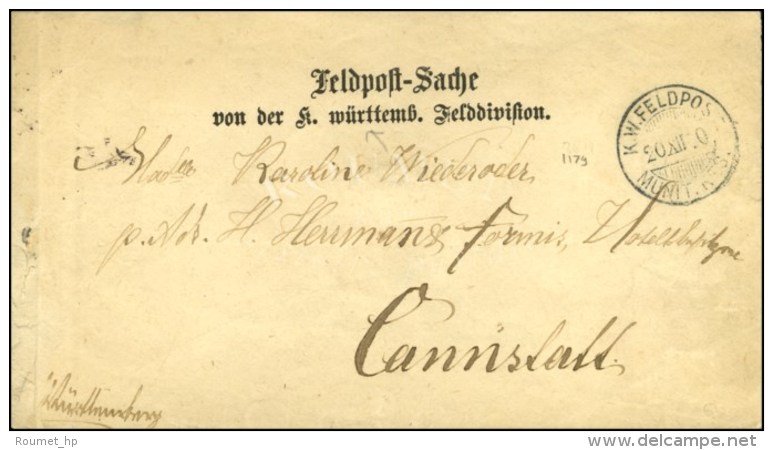 Feldpost-Sache
von der K. württemb. Felddivision.
K.W.FELDPOS
20 XII 0
MUNIT.
1179
Karoline Wiederoder
p. Adr. H. Herrmann & Formis,
Cannstatt
Württemberg
Roumet_hp
www.delcampe.net